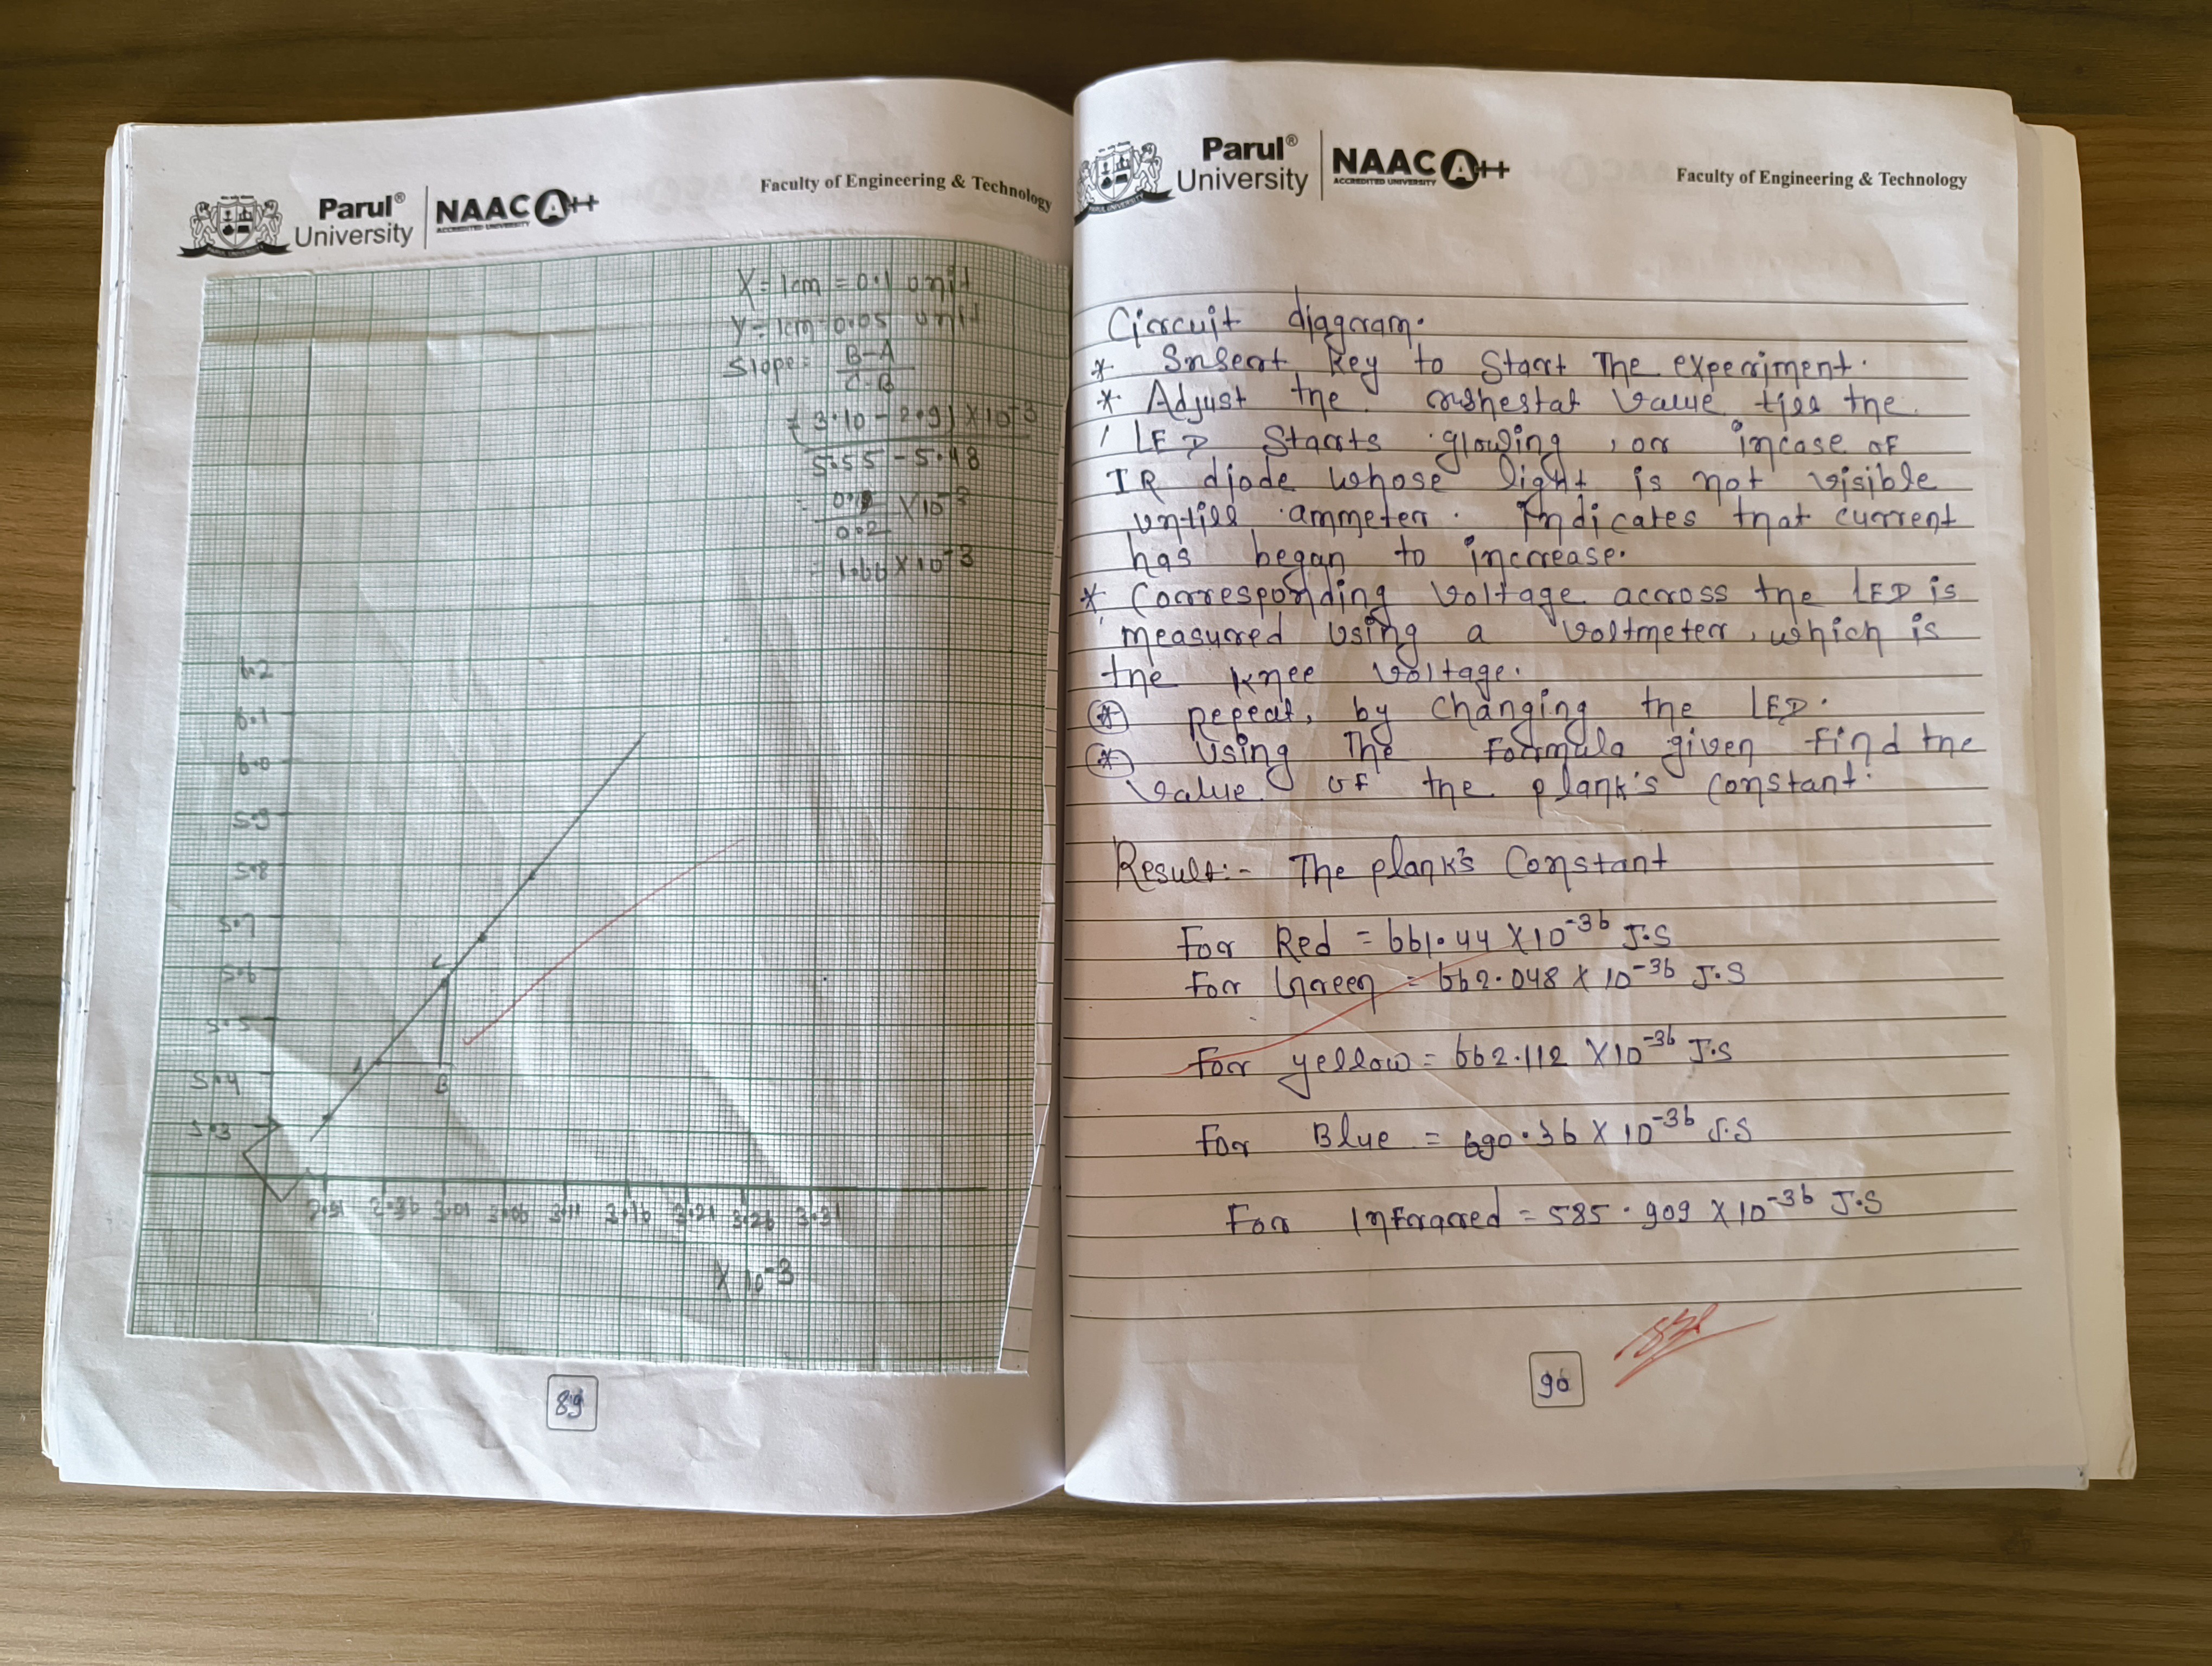 Parul®
University
NAAC A++
ACCREDITED UNIVERSITY
Faculty of Engineering & Technology
X = 1cm = 0.1 unit
Y = 1cm = 0.05 unit
Slope = B-A
C-B
= (3.10 - 2.91) × 10⁻³
5.55 - 5.48
× 10⁻³
0.2
= 1.66 × 10⁻³
6.2
6.1
6.0
5.9
5.8
5.7
5.6
5.5
5.4
5.3
C
A
B
2.91 2.96 3.01 3.06 3.11 3.16 3.21 3.26 3.31
× 10⁻³
89
Parul®
University
NAAC A++
ACCREDITED UNIVERSITY
Faculty of Engineering & Technology
Circuit diagram.
* Insert key to Start The experiment.
* Adjust the value till the
LED Starts glowing, or incase of
IR diode whose light is not visible
untill ammeter. Indicates that current
has began to increase.
* Corresponding voltage across the LED is
measured using a voltmeter, which is
the knee voltage.
* repeat, by changing the LED.
* Using The Formula given Find the
value of the plank's constant.
Result:- The plank's Constant
For Red = 661.44 × 10⁻³⁶ J.S
For Green = 662.048 × 10⁻³⁶ J.S
For yellow = 662.112 × 10⁻³⁶ J.S
For Blue = 690.36 × 10⁻³⁶ J.S
For Infrared = 585.909 × 10⁻³⁶ J.S
90